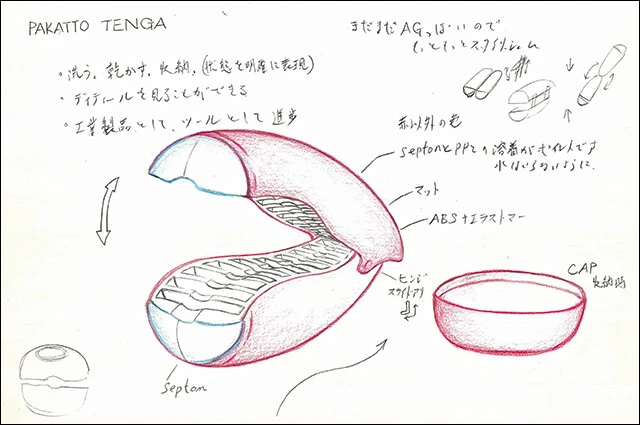 PAKATTO TENGA
・洗う、乾かす、収納、(状態を明確に表現)
・ディテールを見ることができる
・工業製品として、ツールとして進歩
まだまだAGっぽいので
もっともっとスタイリッシュ
赤以外の色
SeptonとPPとの溶着がポイントです
水はいらないように
マット
ABS+エラストマー
ヒンジ
スライドアリ
CAP
収納時
Septon